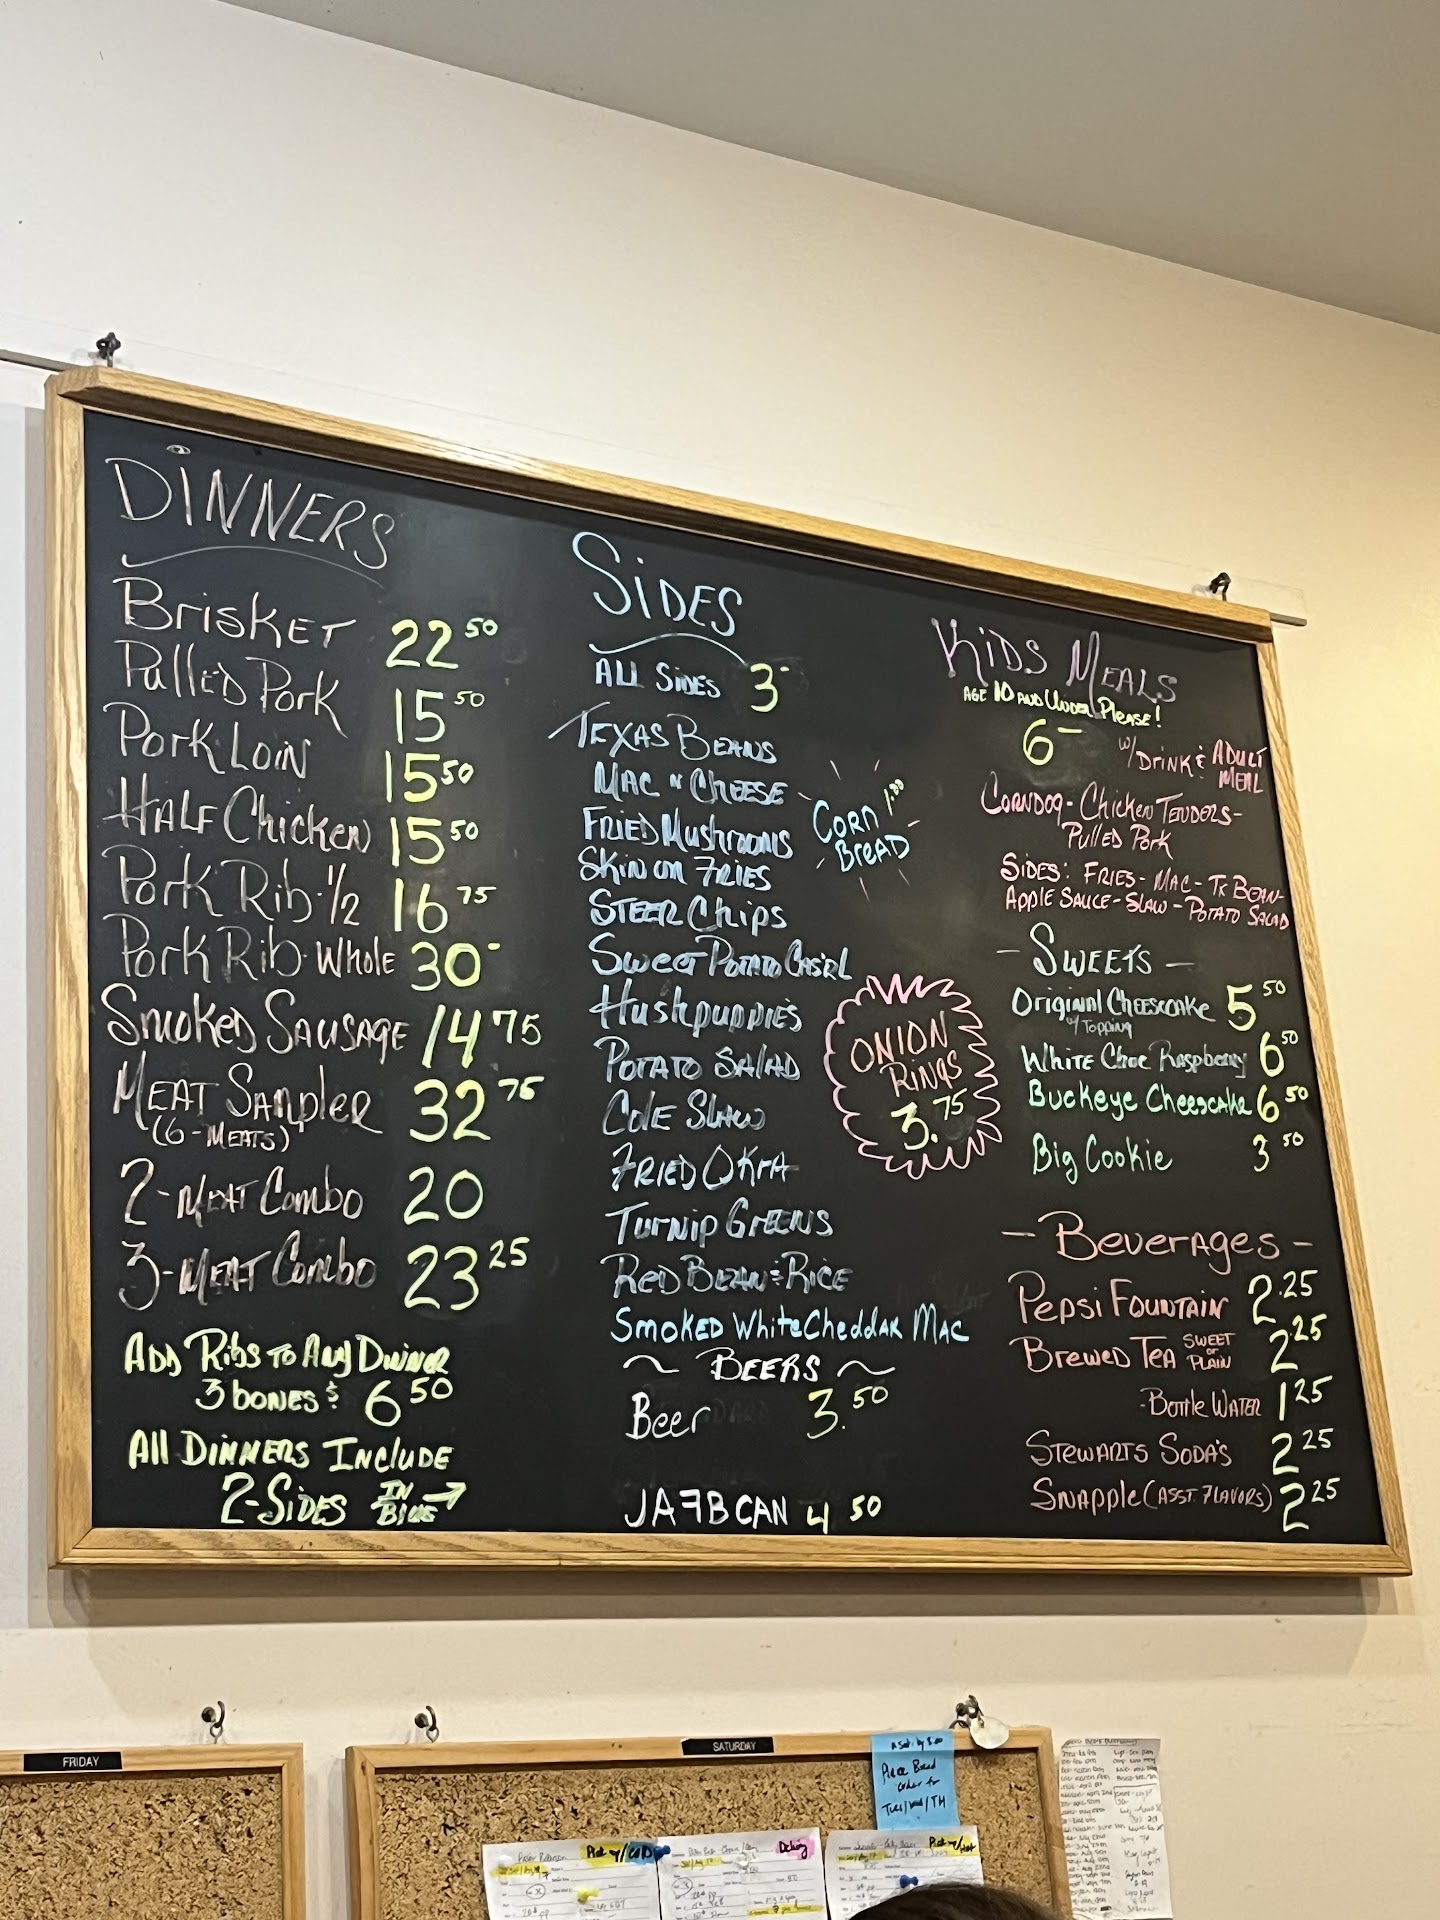 DINNERS
BRISKET 22 50
PULLED PORK 15 50
PORK LOIN 15 50
HALF CHICKEN 15 50
PORK RIB-1/2 16 75
PORK RIB-WHOLE 30-
SMOKED SAUSAGE 14 75
MEAT SAMPLER 32 75
(6-MEATS)
2-MEAT COMBO 20
3-MEAT COMBO 23 25
ADD RIBS TO ANY DINNER
3 BONES 6 50
ALL DINNERS INCLUDE
2-SIDES IN BLUE →
SIDES
ALL SIDES 3-
TEXAS BEANS
MAC N CHEESE
FRIED MUSHROOMS
SKIN ON FRIES
STEER CHIPS
SWEET POTATO CAS'RL
HUSHPUPPIES
POTATO SALAD
COLE SLAW
FRIED OKRA
TURNIP GREENS
RED BEAN & RICE
SMOKED WHITE CHEDDAR MAC
CORN 1.00
BREAD
ONION
RINGS
3.75
~ BEERS ~
Beer 3.50
JAFB CAN 4 50
KIDS MEALS
AGE 10 AND UNDER PLEASE!
6- W/DRINK & ADULT
MEAL
CORNDOG- CHICKEN TENDERS-
PULLED PORK
SIDES: FRIES- MAC- TX BEAN-
APPLE SAUCE- SLAW- POTATO SALAD
- SWEETS -
ORIGINAL CHEESECAKE 5 50
W/ TOPPING
WHITE CHOC RASPBERRY 6 50
BUCKEYE CHEESECAKE 6 50
BIG COOKIE 3 50
- BEVERAGES -
PEPSI FOUNTAIN 2.25
BREWED TEA SWEET or PLAIN 2.25
-BOTTLE WATER 1 25
STEWARTS SODA'S 2 25
SNAPPLE (ASST. FLAVORS) 2 25
FRIDAY
SATURDAY
Order for
Tues/Wed/TH
Delivery